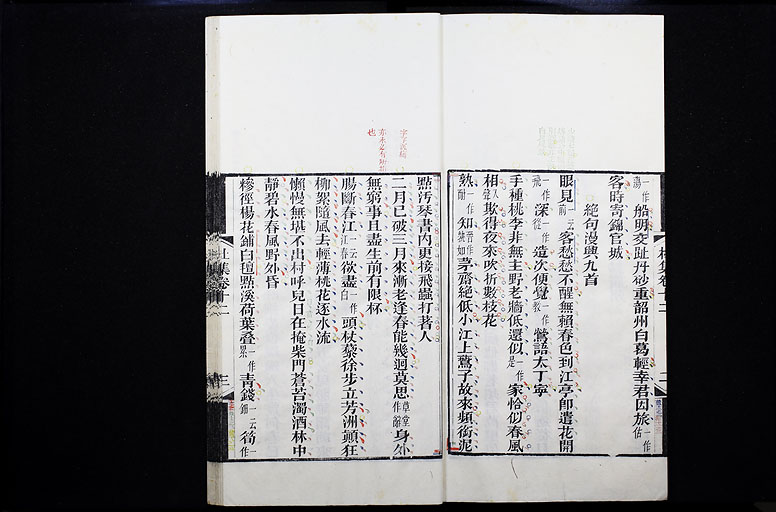 蕩一作船明交趾丹砂重韶州白葛輕幸君因旅估一作
客時寄錦官城
絶句漫興九首
眼見前一云客愁愁不醒無賴春色到江亭即遣花開
飛一作深從一作造次便覺教一作鶯語太丁寧
手種桃李非無主野老牆低還似是一作家恰似春風
相欺得夜來吹折數枝花
熟耐一作知茅齋絶低小江上鷰子故來頻銜泥
點汚琴書内更接飛蟲打著人
二月已破三月來漸老逢春能幾迴莫思草堂作辭身外
無窮事且盡生前有限杯
腸斷春江江春一云欲盡白一作頭杖藜徐步立芳洲顛狂
柳絮隨風去輕薄桃花逐水流
懶慢無堪不出村呼兒日在掩柴門蒼苔濁酒林中
靜碧水春風野外昏
糝徑楊花鋪白氊點溪荷葉疊累一作青錢鈿一云筍一作
杜集卷十二
二
杜集卷十二
三